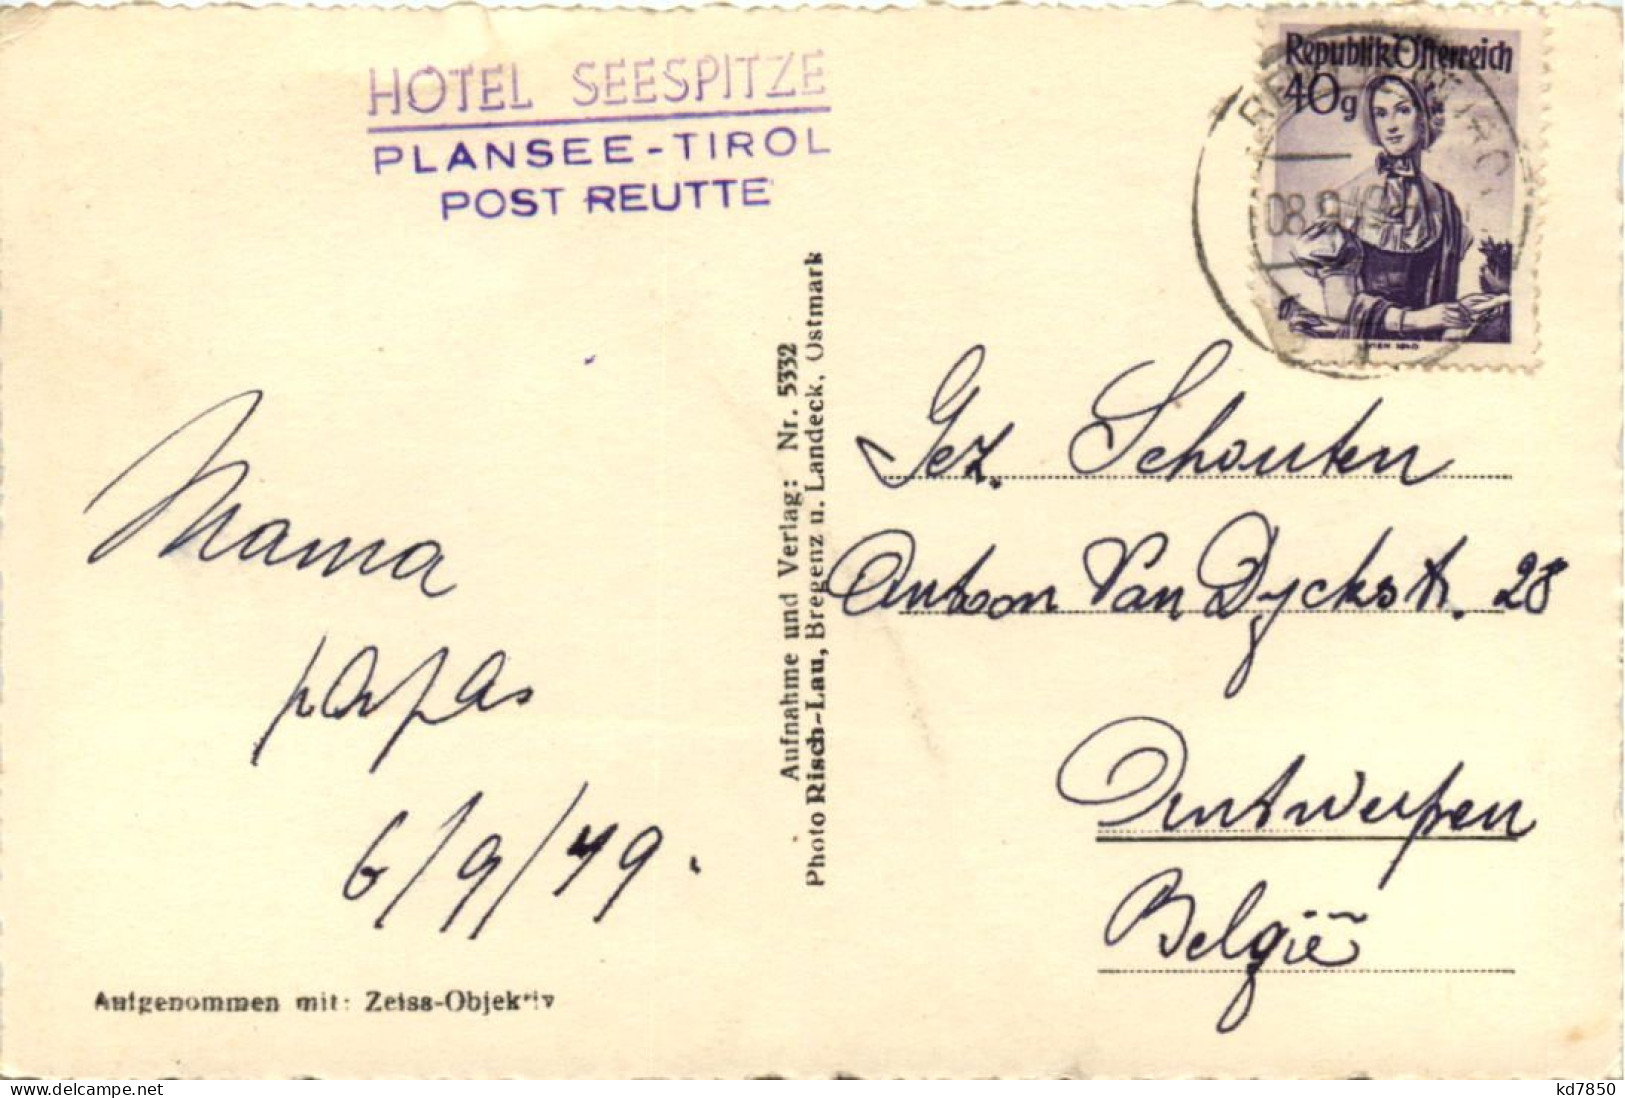 HOTEL SEESPITZE
PLANSEE-TIROL
POST REUTTE
Republik Österreich
40g
WIEN 1840
08.9.49
Mama
papas
6/9/49.
Aufgenommen mit: Zeiss-Objektiv
Aufnahme und Verlag: Nr. 5332
Photo Risch-Lau, Bregenz u. Landeck, Ostmark
Gez. Schouten
Anton Van Dyckstr. 28
Antwerpen
België
kd7850